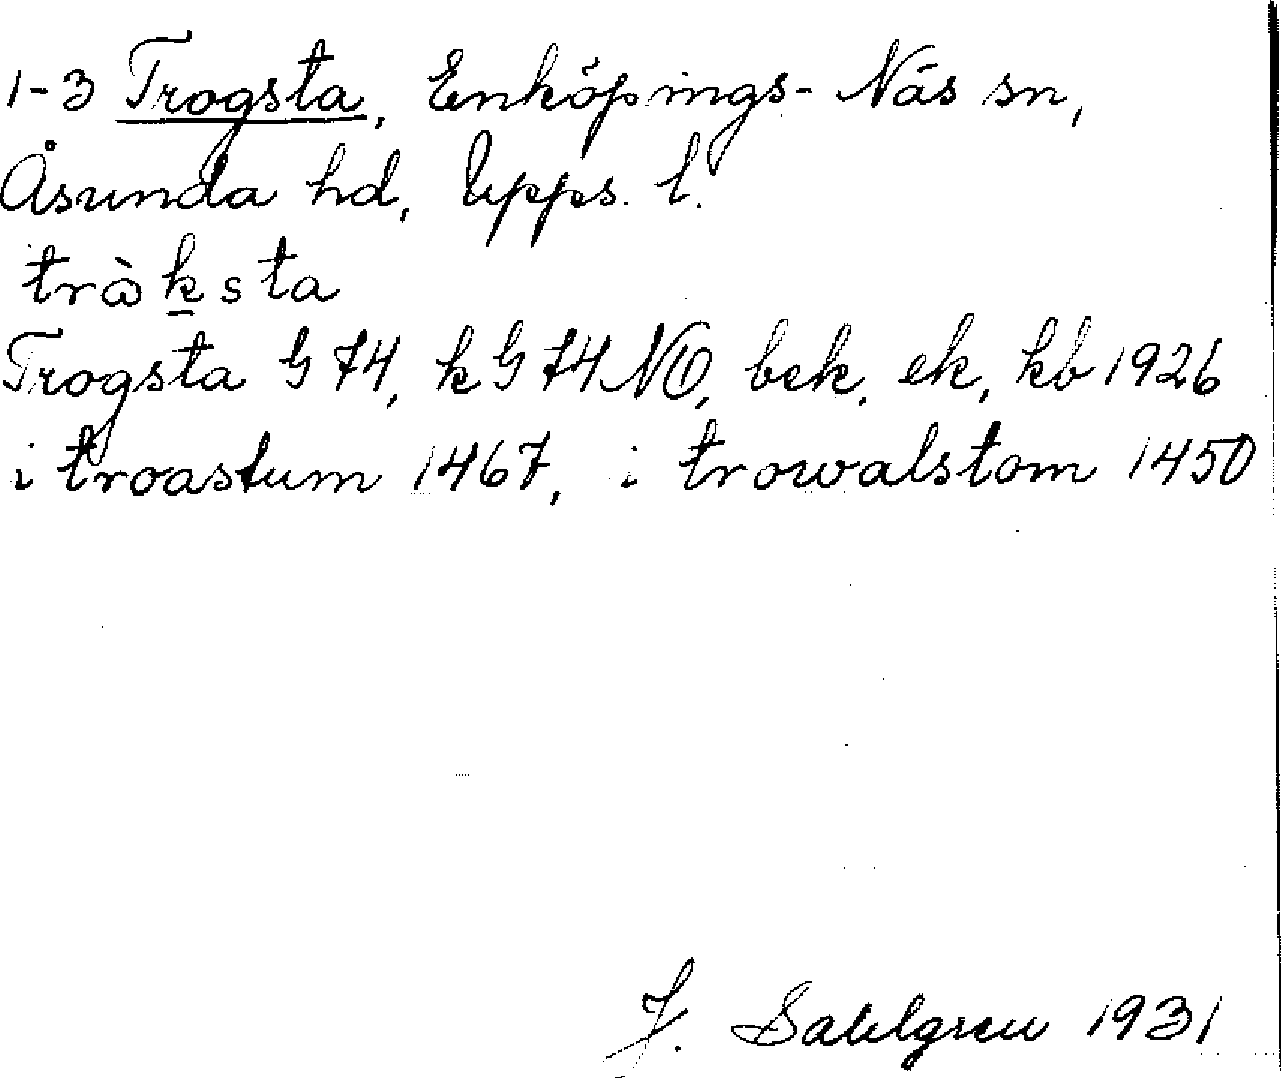 1-3 Trogsta, Enköpings-Näs sn,
Åsunda hd, Upps. l.
trò̀ksta
Trogsta G 74, k G 74 NO, bek, ek, kb 1926
i troastum 1467, i trowalstom 1450
J. Sahlgren 1931